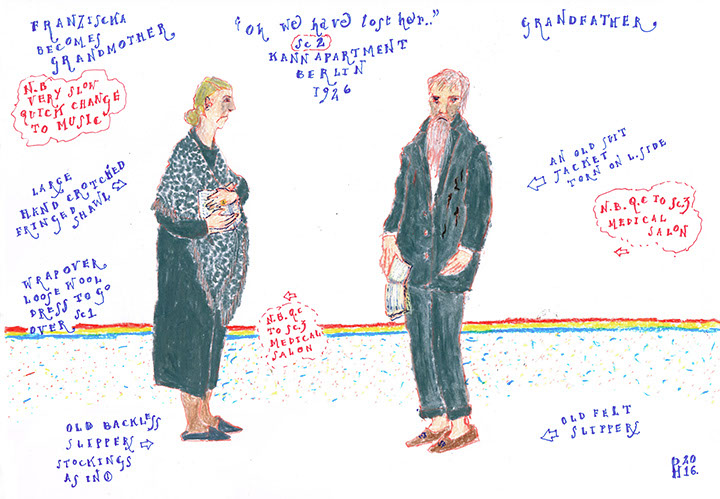 FRANZISCHA
BECOMES
GRANDMOTHER.
"Oh we have lost her.."
Sc 2
KANN APARTMENT
BERLIN
1926
GRANDFATHER.
N.B
VERY SLOW
QUICK CHANGE
TO MUSIC
LARGE
HAND CROTCHED
FRINGED
SHAWL
AN OLD SUIT
JACKET
TORN ON L.SIDE
N.B. Q.C TO Sc.3
MEDICAL
SALON
WRAPOVER
LOOSE WOOL
DRESS TO GO
OVER Sc1
N.B. Q.C
TO Sc.3
MEDICAL
SALON
OLD BACKLESS
SLIPPERS
STOCKINGS
AS IN ①
OLD FELT
SLIPPERS
20
16.